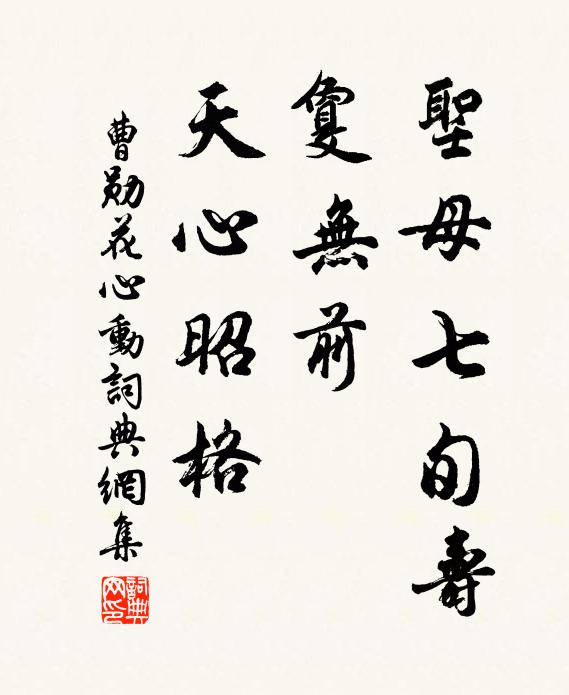 聖母七旬壽
敻無前
天心昭格
曹勛花心動詞典網集
詞典網印